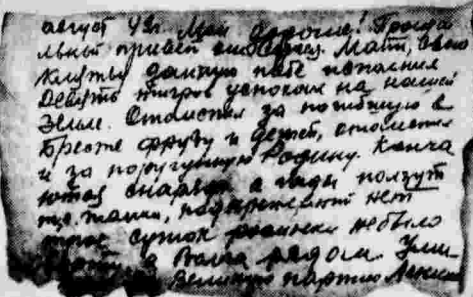 август 42г. Мои дорогие! Проща
льный привет
клятву данную тебе исполнил
Девять тигров успокоил на нашей
Земле. Отомстил за погибшую в
Бресте Фрузу и детей, отомстил
и за поруганную Родину. Конча
ются снаряды а гады ползут
танки, подкреплений нет
трое суток росинки не было
а Волга рядом. Уми
великую партию Ленин